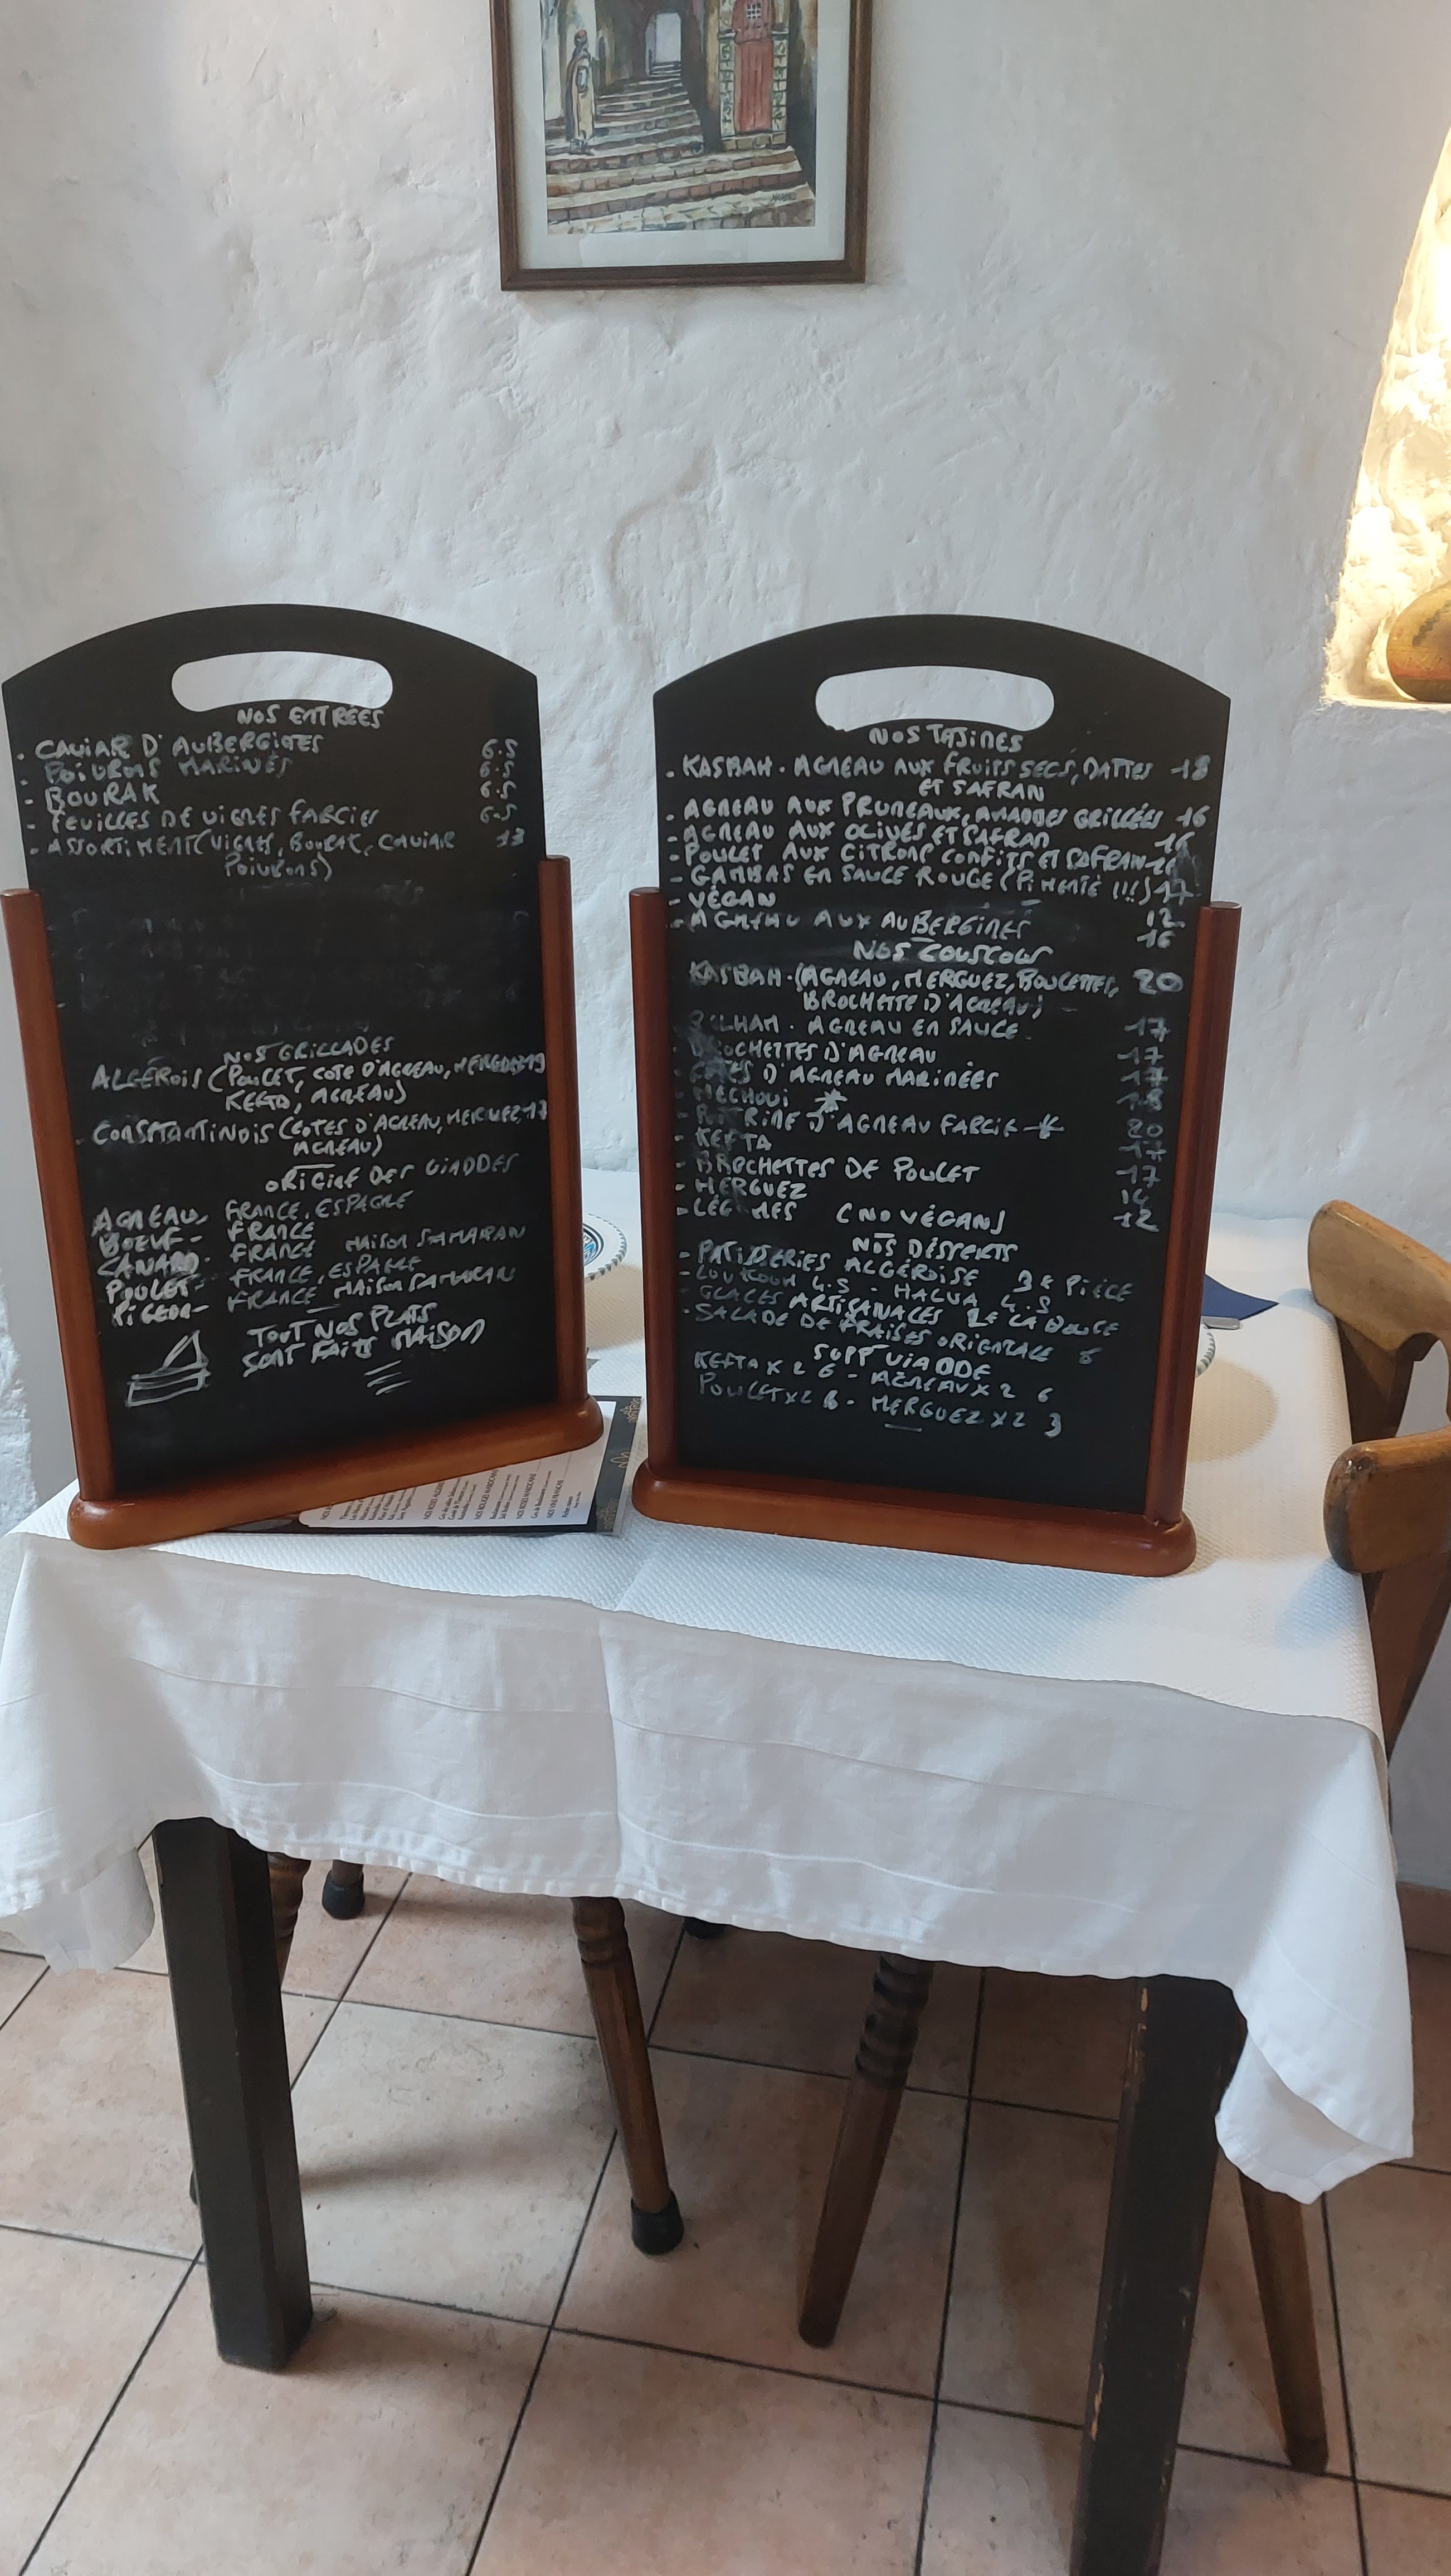 NOS ENTRÉES
- CAVIAR D'AUBERGINES 6.5
- POIVRONS MARINÉS 6.5
- BOURAK 6.5
- FEUILLES DE VIGNES FARCIES 6.5
- ASSORTIMENT (VIGNES, BOURAK, CAVIAR 13
POIVRONS)
NOS GRILLADES
ALGÉROIS (POULET, COTE D'AGNEAU, MERGUEZ 19
KEFTA, AGNEAU)
- CONSTANTINOIS (COTES D'AGNEAU, MERGUEZ 17
AGNEAU)
ORIGINE DES VIANDES
AGNEAU- FRANCE, ESPAGNE
BOEUF- FRANCE
CANARD- FRANCE MAISON SAMARAN
POULET- FRANCE, ESPAGNE
PIGEON- FRANCE MAISON SAMARAN
TOUT NOS PLATS
SONT FAITS MAISON
NOS TAJINES
- KASBAH. AGNEAU AUX FRUITS SECS, DATTES 18
ET SAFRAN
- AGNEAU AUX PRUNEAUX, AMANDES GRILLÉES 16
- AGNEAU AUX OLIVES ET SAFRAN 16
- POULET AUX CITRONS CONFITS ET SAFRAN 16
- GAMBAS EN SAUCE ROUGE (PIMENTÉ !!!) 17
- VÉGAN 12
- AGNEAU AUX AUBERGINES 16
NOS COUSCOUS
KASBAH. (AGNEAU, MERGUEZ, BOULETTES, 20
BROCHETTE D'AGNEAU)
AGNEAU EN SAUCE. 17
BROCHETTES D'AGNEAU 17
COTES D'AGNEAU MARINÉES 17
MECHOUI * 18
- POITRINE D'AGNEAU FARCIE * 20
- KEFTA 17
- BROCHETTES DE POULET 17
- MERGUEZ 14
- LÉGUMES (NO VÉGAN) 12
NOS DESSERTS
- PATISSERIES ALGÉROISE 3€ PIÈCE
- LOUKOUM 4.5 - HALVA 4.5
- GLACES ARTISANALES 2€ LA BOULE
- SALADE DE FRAISES ORIENTALE 6
SUPP VIANDE
KEFTA X 2 6 - AGNEAU X 2 6
POULET X 2 6 - MERGUEZ X 2 3